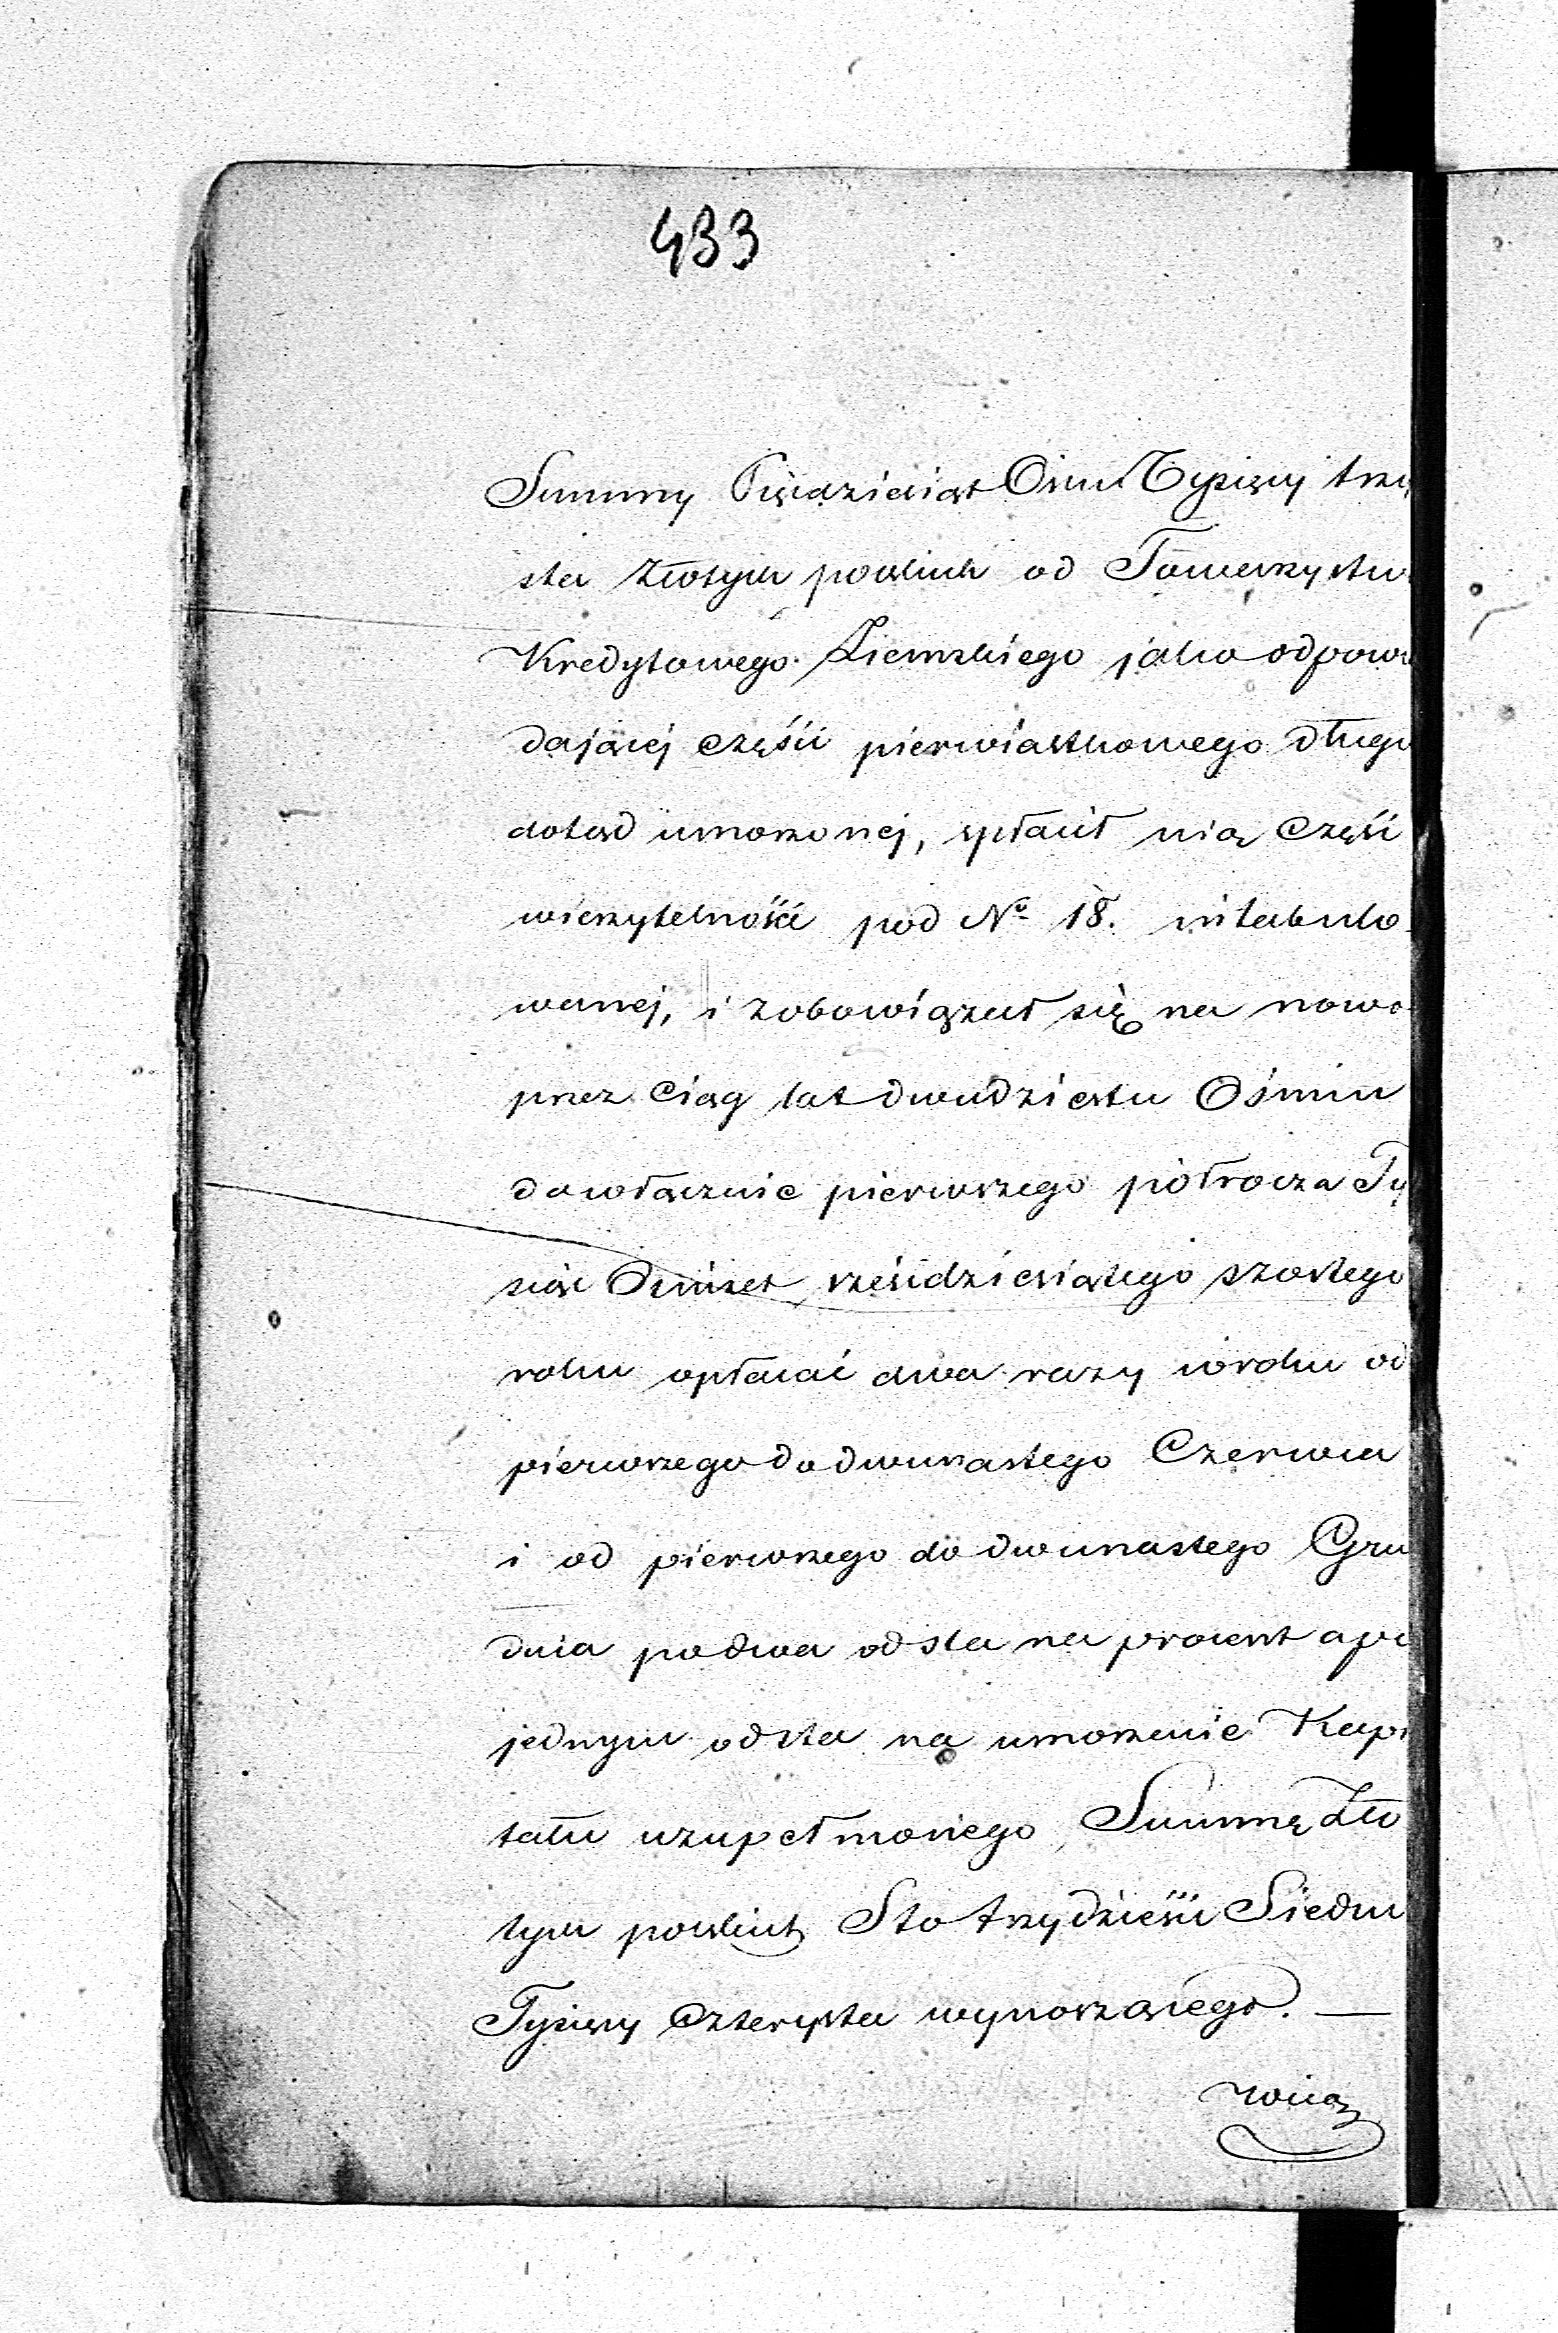 433
Summy Pięćdziesiąt Ośm Tysięcy trzy
sta złotych polskich od Towarzystw
Kredytowego Ziemskiego jako odpowi
dającej części pierwiastkowego długu
dotąd umorzonej, spłacił nią część
wierzytelności pod No 18. intabulo
wanej, i zobowiązał się na nowo
przez ciąg lat dwudziestu Ośmiu
dowłącznie pierwszego półrocza Ty
siąc Ośmset sześćdziesiątego szóstego
roku opłacać dwa razy w roku od
pierwszego do dwunastego Czerwca
i od pierwszego do dwunastego Gru
dnia po dwa od sta na procent a po
jednym od sta na umorzenie Kapi
tału uzupełnionego, Summę Zło
tych polskich Sto trzydzieści Siedm
Tysięcy czterysta wynoszącego. —